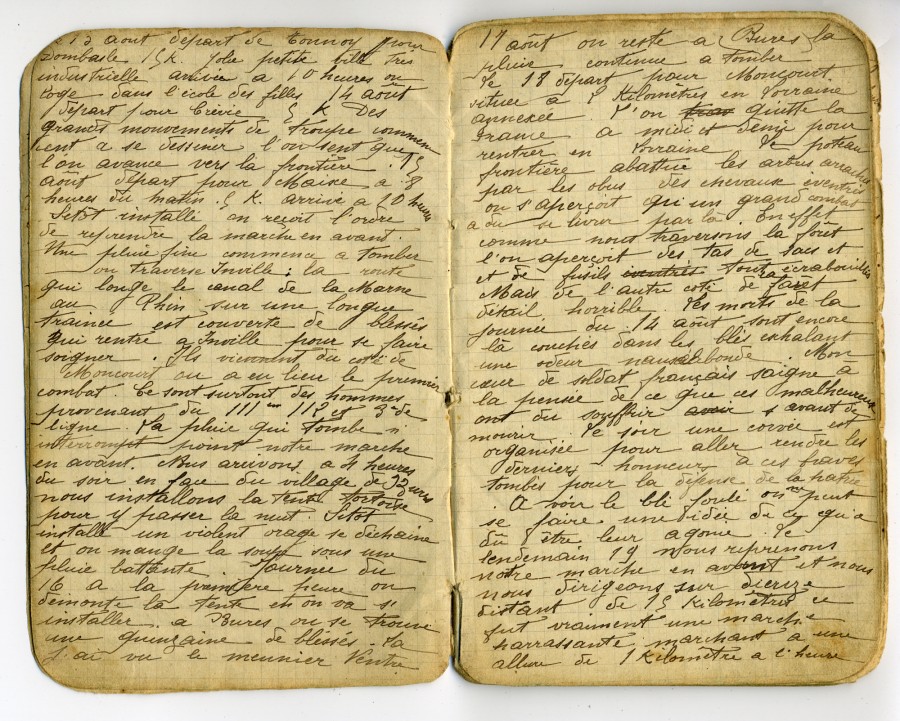 13 aout départ de Tonnoy pour
Dombasle 15K. Jolie petite ville très
industrielle arrivée a 10 heures on
loge dans l'école des filles 14 août
départ pour Crévic K Des
grands mouvements de troupe commen
cent a se dessiner l'on sent que
l'on avance vers la frontière. 15
août départ pour Maixe a 8
heures du matin. K. arrivé a 10 heures
Sitôt installé on reçoit l'ordre
de reprendre la marche en avant.
Une pluie fine commence a tomber
on traverse Inville ; la route
qui longe le canal de la Marne
au Rhin sur une longue
trainée est couverte de blessés
qui rentre a Inville pour se faire
soigner. Ils viennent du coté de
Moncourt ou a eu lieu le premier
combat. Ce sont surtout des hommes
provenant du 111 em 112 et 3 de
ligne. La pluie qui tombe n'
interrompt point notre marche
en avant. Nous arrivons a 4 heures
du soir en face du village de Bures
nous installons la tente
pour y passer la nuit. Sitôt
installé un violent orage se déchaine
et on mange la soupe sous une
pluie battante. Journée du
16 a la première heure on
démonte la tente et on va s'
installer a Bures ou se trouve
une quinzaine de blessés. La
j'ai vu le meunier Ventre
17 août on reste a Bures la
pluie continue a tomber
Le 18 départ pour Moncourt.
situer à Kilomètres en Lorraine
annexée. L'on quitte la
France a midi et demi pour
rentrer en Lorraine Le poteau
frontière abattue les arbres arrachés
par les obus des chevaux éventrés
on s'aperçoit qu'un grand combat
a du se livrer par là. En effet
comme nous traversons la forêt
l'on aperçoit des tas de sacs et
et de fusils tous écrabouillés
Mais de l'autre coté de la foret
détail horrible. Les morts de la
journée du 14 août sont encore
là couchés dans les blés exhalant
une odeur nauséabonde. Mon
cœur de soldat français saigne à
la pensée de ce que ces malheureux
ont du souffrir avant de
mourir. Le soir une corvée est
organisée pour aller rendre les
derniers honneurs à ces braves
tombés pour la défense de la patrie
. A voir le blé foulé on peut
se faire une idée de ce qu'a
dû être leur agonie. Le
lendemain 19 nous reprenons
notre marche en avant et nous
nous dirigeons sur Dieuze
distant de 15 Kilomètres ce
fut vraiment une marche
harrassante marchant a une
allure de 1 Kilomètre a l'heure